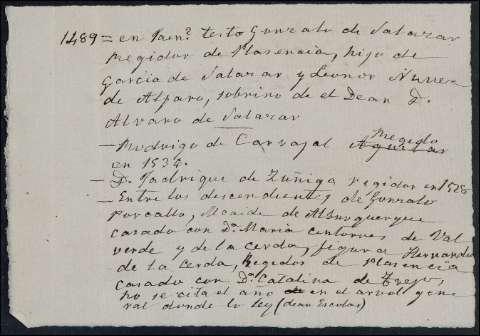 1489 = en Jaen.º testo Gonzalo de Salazar
Regidor de Plasencia, hijo de
Garcia de Salazar y Leonor Nuñez
de Alfaro, sobrino de el Dean D.
Alvaro de Salazar
— Rodrigo de Carvajal Regido
en 1534.
— D. Fadrique de Zuñiga regidor en 1528
— Entre los descendientes de Gonzalo
Porcallo, Alcaide de Alburquerque
casado con Dª Maria de Val
verde y de la Cerda, figura Hernando
de la Cerda, Regidor de Plasencia
casado con Dª Catalina de Trejo,
no se cita el año en el arvol gene
ral donde lo ley (dean Escolar)